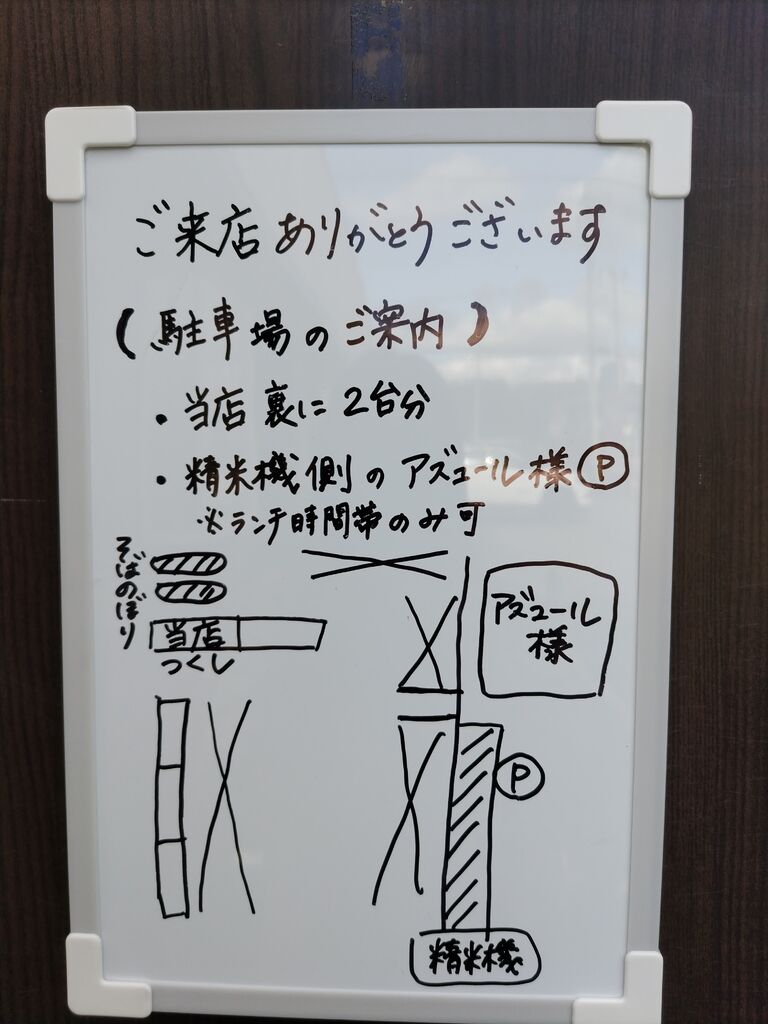 ご来店ありがとうございます
(駐車場のご案内)
・当店裏に2台分
・精米機側のアズュール様Ⓟ
※ランチ時間帯のみ可
そばのぼり
当店
つくし
アズュール
様
Ⓟ
精米機